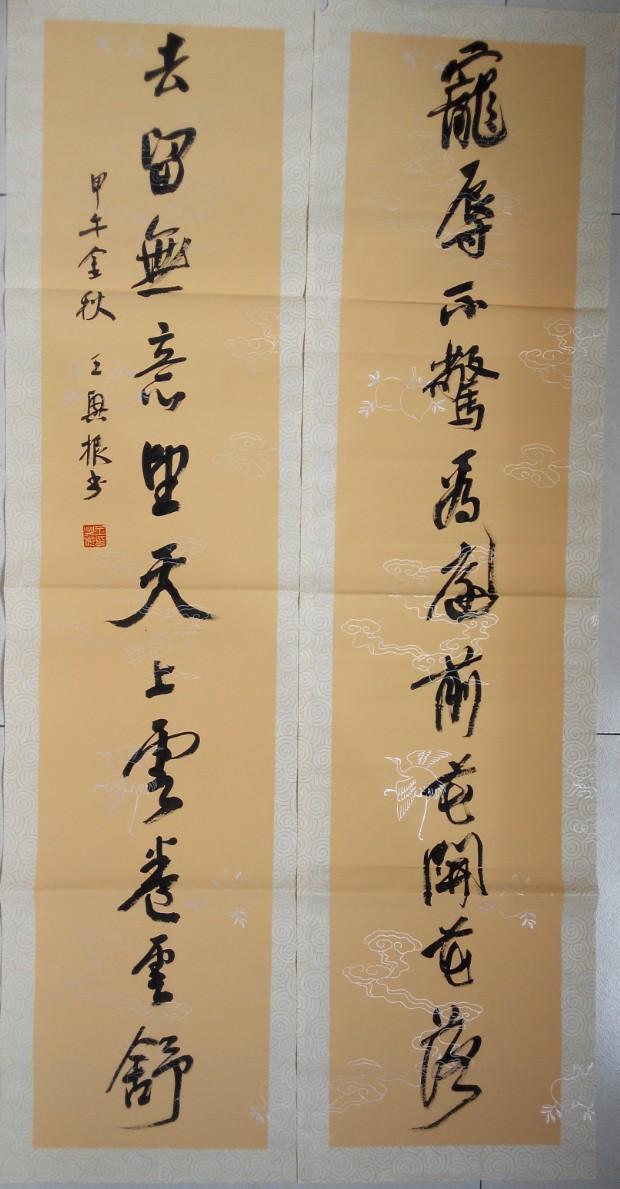 寵辱不驚看庭前花開花落
去留無意望天上雲卷雲舒
甲午金秋 王興根书